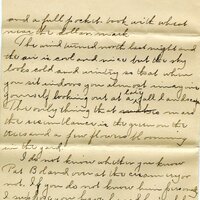 and a full pocket book with wheat
near the dollar mark
The wind turned north last night and
the air is cool and nice but the sky
looks cold and wintry so that when
you sit indoors you almost imagine
yourself looking out at a late fall landscape
The only thing that
the resemblance is the green on the
trees and a few flowers blooming
in the yard
I do not know whether you knew
Pat Boland over at the creamery or
not. If you do not know him personally